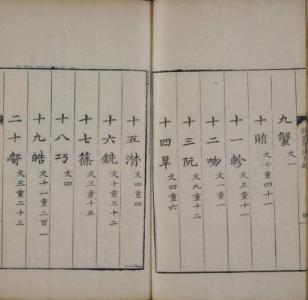 九蟹 文一
十賄 文七重四十一
十一軫 文五重十一
十二吻 文一重一
十三阮 文九重十二
十四旱 文四重六
十五潸 文四重四
十六銑 文十重三十二
十七篠 文三重十五
十八巧 文四
十九皓 文十一重二百一
二十哿 文三重二十三